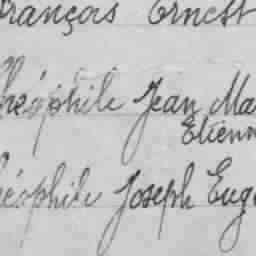 François Ernest
Théophile Jean Ma
Etienn
éophile Joseph Eug